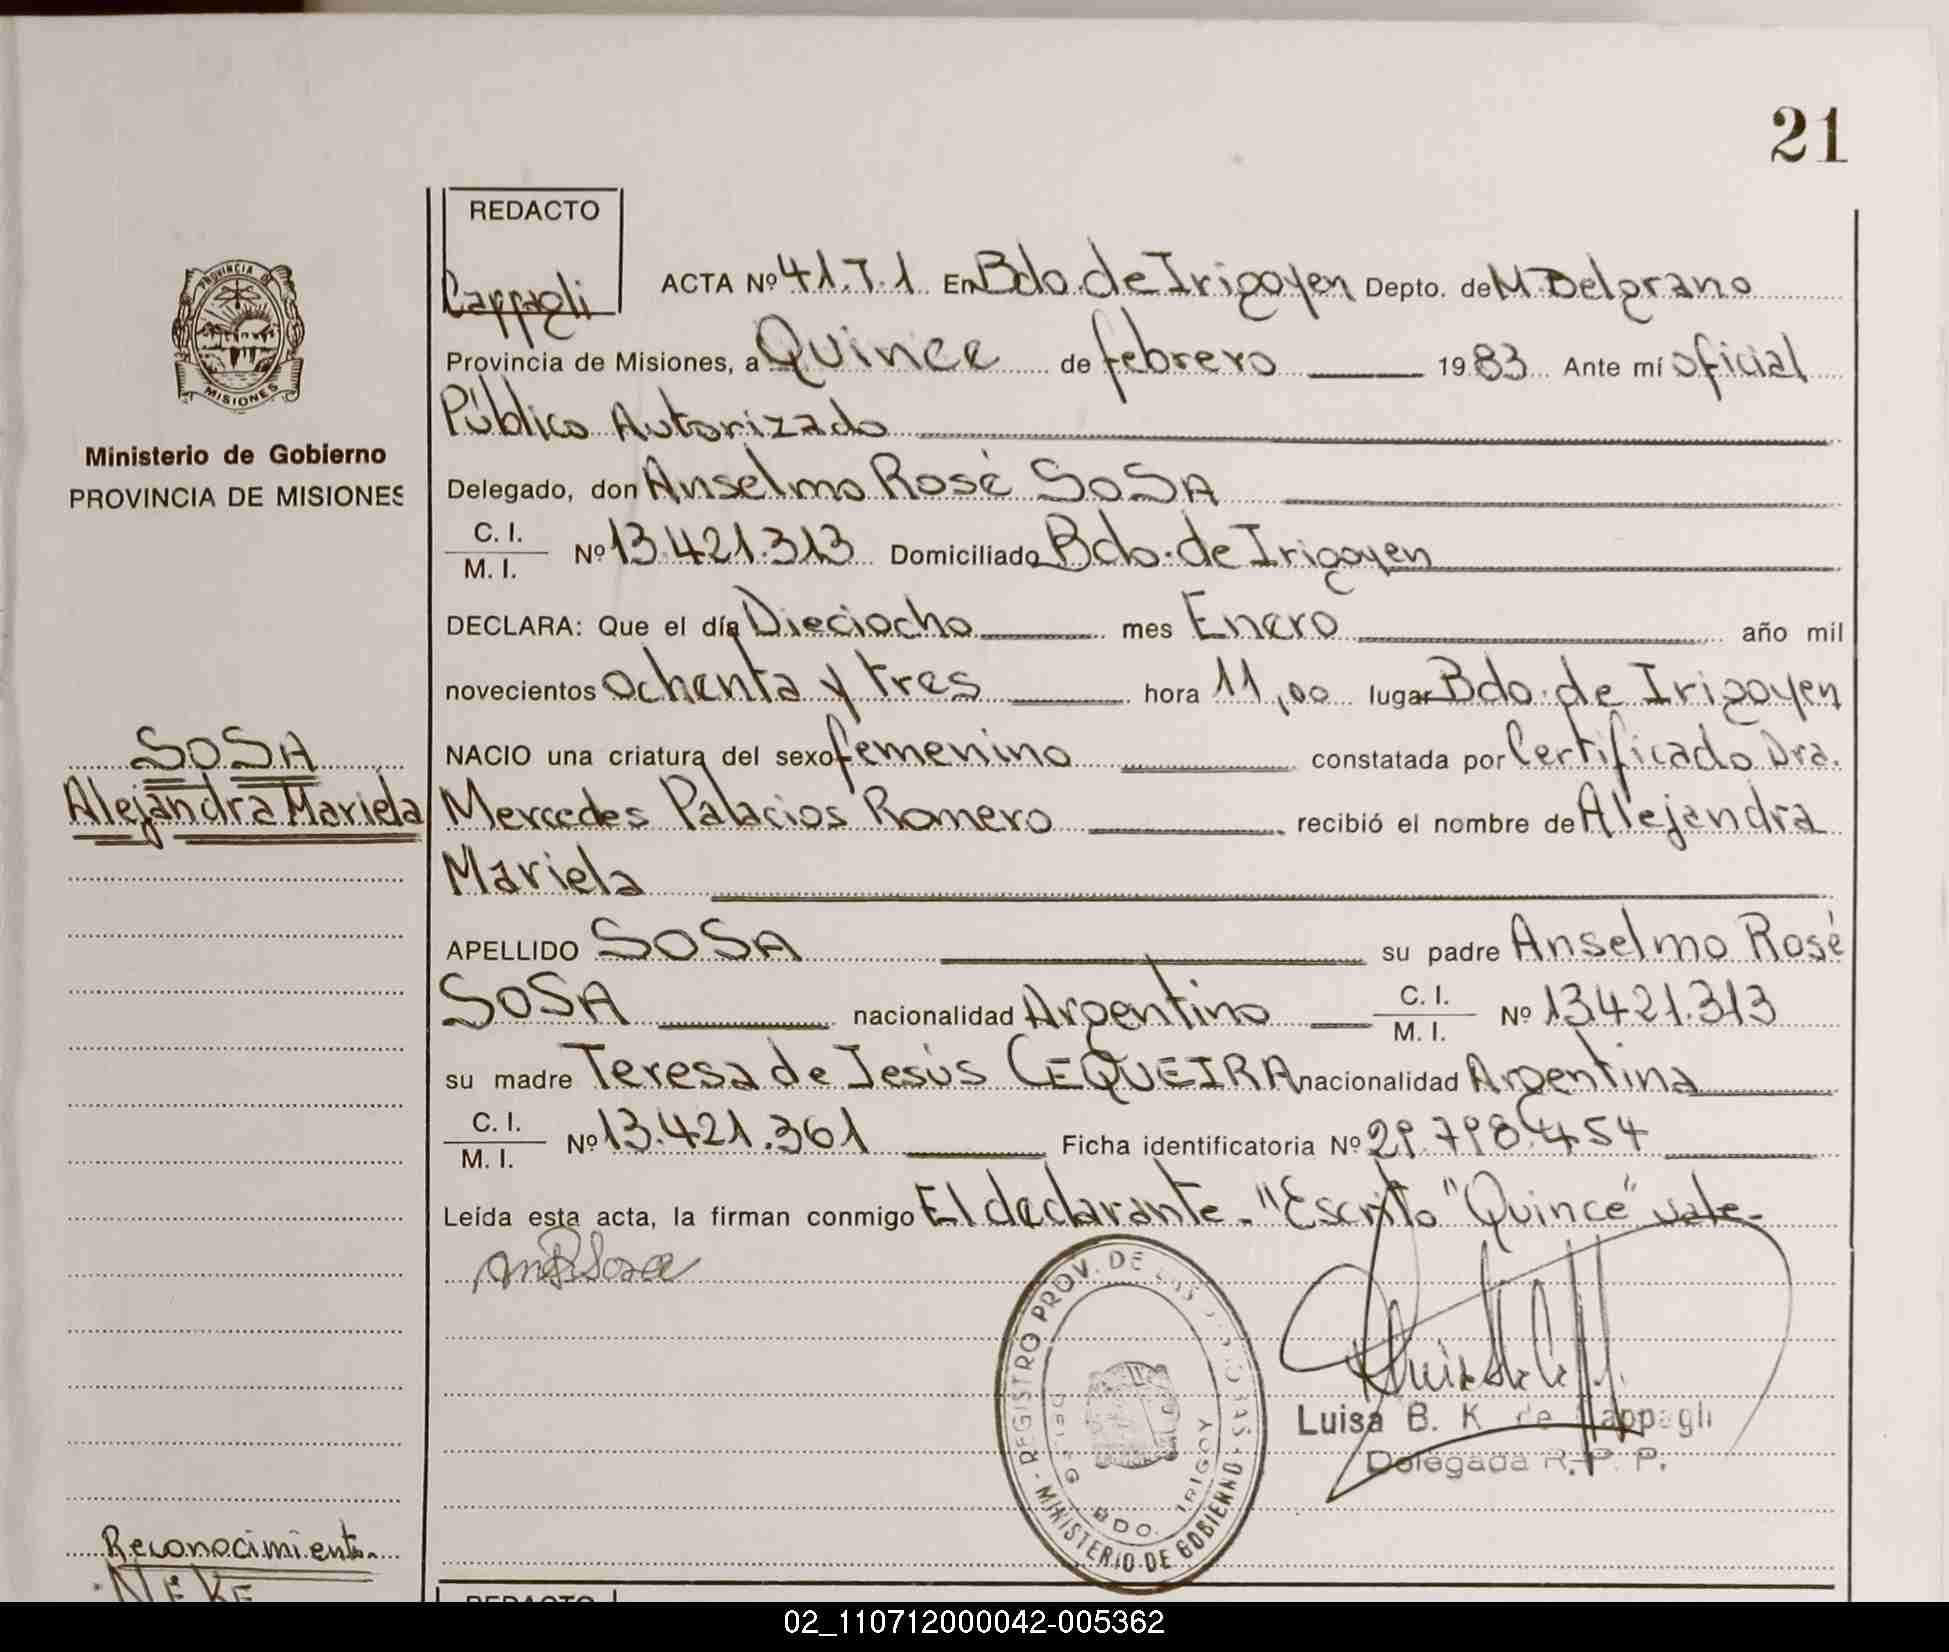 21
REDACTO
Cappagli
ACTA Nº 41.T.1 En Bdo. de Irigoyen Depto. de M. Belgrano
Provincia de Misiones, a Quince de febrero 1983 Ante mí oficial
Público Autorizado
Delegado, don Anselmo Rosé SOSA
C. I.
M. I.
Nº 13.421.313 Domiciliado Bdo. de Irigoyen
DECLARA: Que el día Dieciocho mes Enero año mil
novecientos ochenta y tres hora 11,00 lugar Bdo. de Irigoyen
NACIO una criatura del sexo femenino constatada por Certificado Dra.
Mercedes Palacios Romero recibió el nombre de Alejandra
Mariela
APELLIDO SOSA su padre Anselmo Rosé
SOSA nacionalidad Argentino C. I. Nº 13.421.313
M. I.
su madre Teresa de Jesús CEQUEIRA nacionalidad Argentina
C. I.
M. I.
Nº 13.421.361 Ficha identificatoria Nº 29.798.454
Leída esta acta, la firman conmigo El declarante - "Escrito "Quince" vale -
PROVINCIA DE
MISIONES
Ministerio de Gobierno
PROVINCIA DE MISIONES
SOSA
Alejandra Mariela
Reconocimiento
NEKE
REGISTRO PROV. DE LAS PERSONAS
MINISTERIO DE GOBIERNO
BDO. IRIGOY
Luisa B. K. de Cappagli
Delegada R. P. P.
REDACTO
02_110712000042-005362